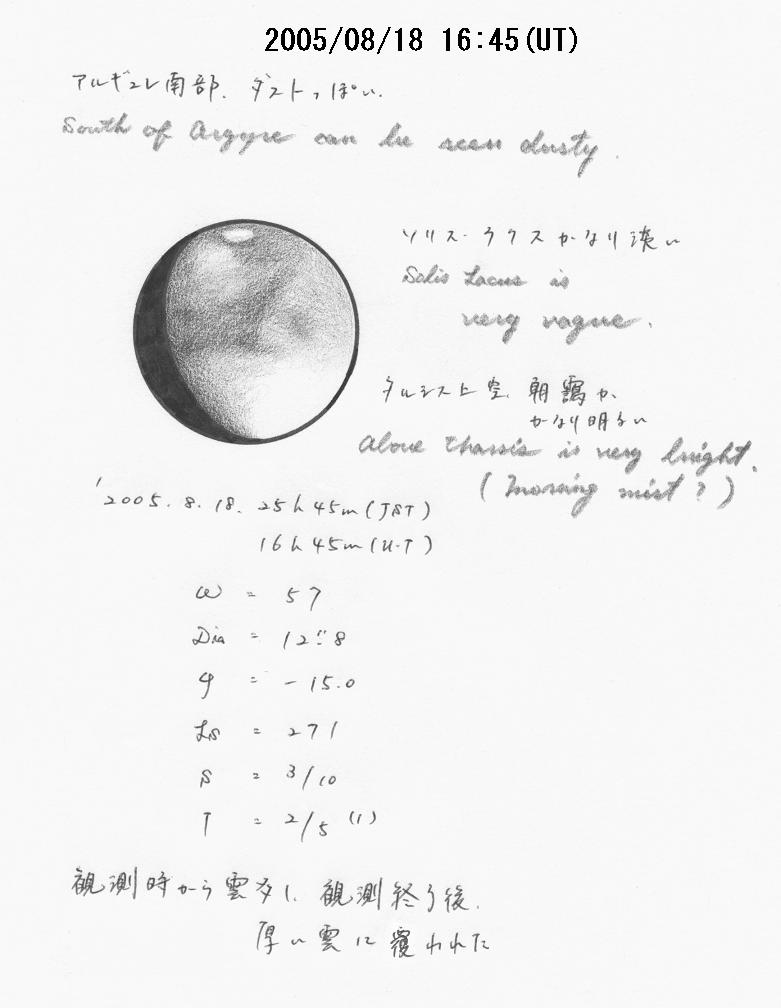 2005/08/18 16:45(UT)
アルギュレ南部、ダストっぽい.
South of Argyre can be seen dusty.
ソリス・ラクスかなり淡い
Solis Lacus is
very vague.
タルシス上空、朝靄か、
かなり明るい
Above Tharsis is very bright.
(Morning mist?)
'2005. 8. 18. 25h 45m (JST)
16h 45m (U.T)
ω = 57
Dia = 12".8
φ = -15.0
Ls = 271
S = 3/10
T = 2/5 (1)
観測時から雲多し、観測終了後、
厚い雲に覆われた